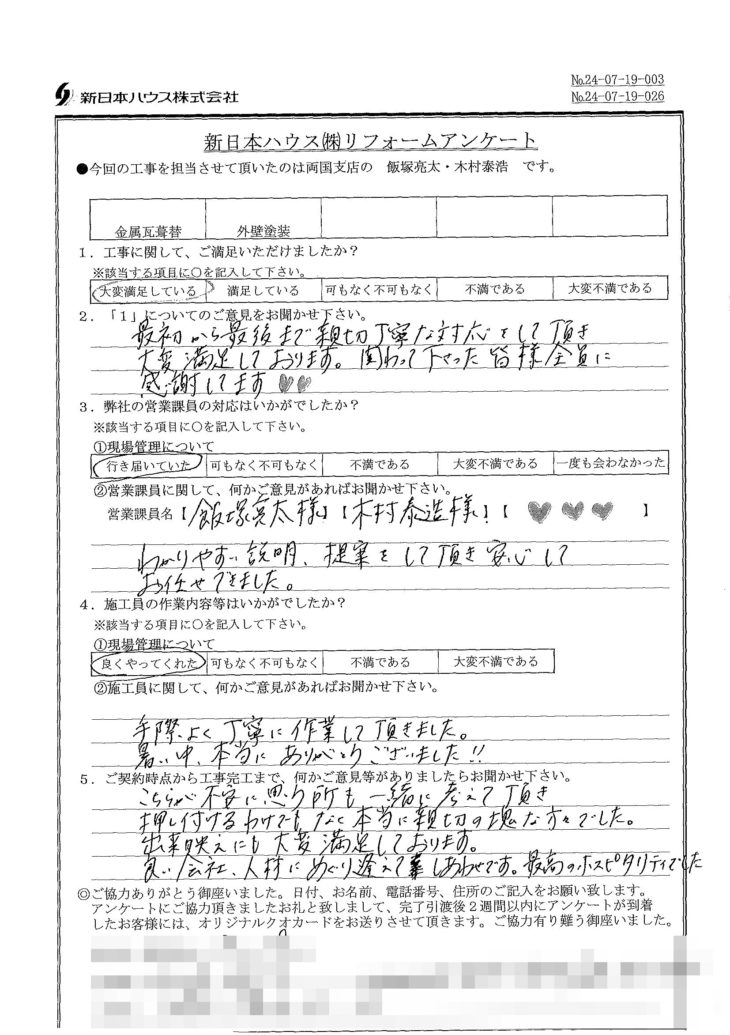 新日本ハウス株式会社
No.24-07-19-003
No.24-07-19-026
新日本ハウス㈱リフォームアンケート
●今回の工事を担当させて頂いたのは両国支店の 飯塚亮太・木村泰浩 です。
金属瓦葺替 外壁塗装
1．工事に関して、ご満足いただけましたか？
※該当する項目に○を記入して下さい。
大変満足している 満足している 可もなく不可もなく 不満である 大変不満である
2．「1」についてのご意見をお聞かせ下さい。
最初から最後まで親切丁寧な対応をして頂き
大変満足しております。関わって下さった皆様全員に
感謝してます♥♥
3．弊社の営業課員の対応はいかがでしたか？
※該当する項目に○を記入して下さい。
①現場管理について
行き届いていた 可もなく不可もなく 不満である 大変不満である 一度も会わなかった
②営業課員に関して、何かご意見があればお聞かせ下さい。
営業課員名【飯塚亮太様】【木村泰造様】【♥♥♥】
わかりやすい説明、提案をして頂き安心して
お任せできました。
4．施工員の作業内容等はいかがでしたか？
※該当する項目に○を記入して下さい。
①現場管理について
良くやってくれた 可もなく不可もなく 不満である 大変不満である
②施工員に関して、何かご意見があればお聞かせ下さい。
手際よく丁寧に作業して頂きました。
暑い中、本当にありがとうございました!!
5．ご契約時点から工事完工まで、何かご意見等がありましたらお聞かせ下さい。
こちらが不安に思う所も一緒に考えて頂き
押し付けるわけでもなく本当に親切の塊な方々でした。
出来映えにも大変満足しております。
良い会社、人材にめぐり逢えてしあわせです。最高のホスピタリティでした
◎ご協力ありがとう御座いました。日付、お名前、電話番号、住所のご記入をお願い致します。
アンケートにご協力頂きましたお礼と致しまして、完了引渡後2週間以内にアンケートが到着
したお客様には、オリジナルクオカードをお送りさせて頂きます。ご協力有り難う御座いました。